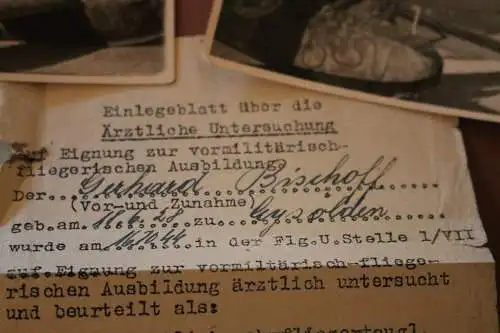 Einlegeblatt über die
Ärztliche Untersuchung
auf Eignung zur vormilitärisch-
fliegerischen Ausbildung.
Der..Gerhard Bischoff.....
(Vor-und Zunahme)
geb.am. 18.6.28 zu Gysolden
wurde am 16.IV.44. in der Flg.U.Stelle 1/VII
auf Eignung zur vormiltärisch-fliege-
rischen Ausbildung ärztlich untersucht
und beurteilt als: